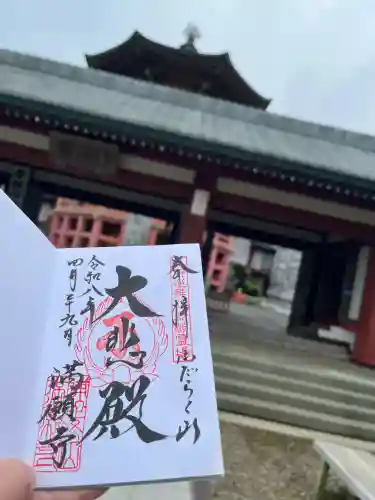 奉拝 ふだらく山
大悲殿
令和八年
四月二十九日
満願寺